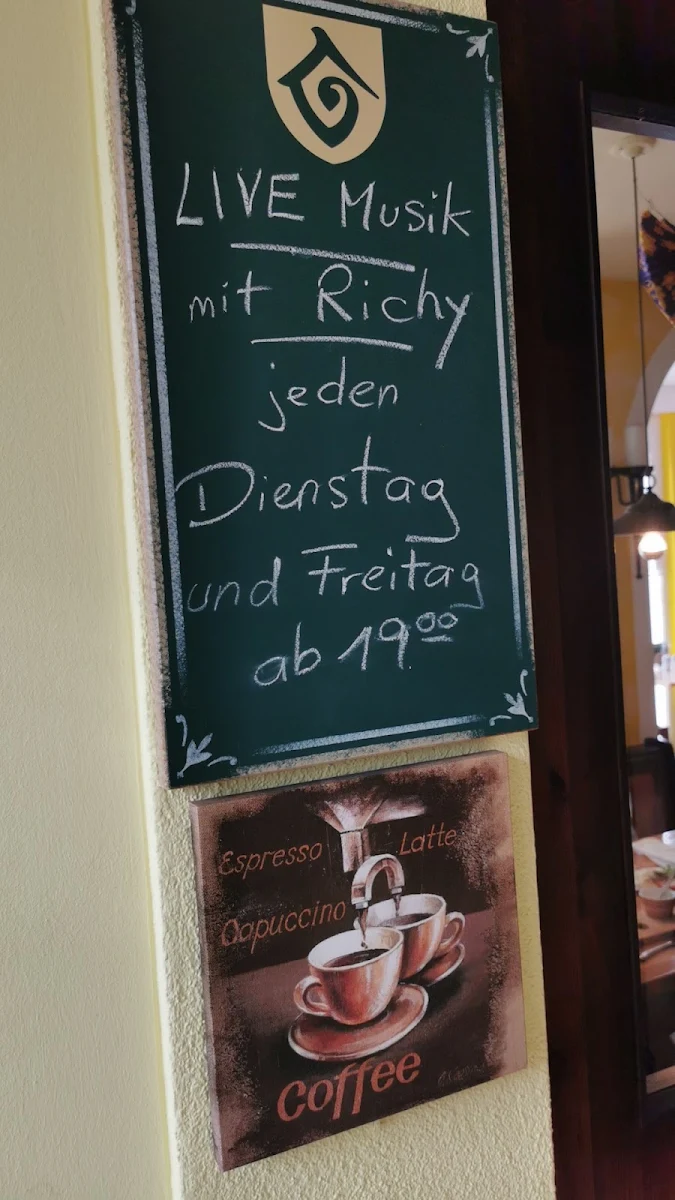 LIVE Musik
mit Richy
jeden
Dienstag
und Freitag
ab 19⁰⁰
Espresso
Latte
Capuccino
Coffee